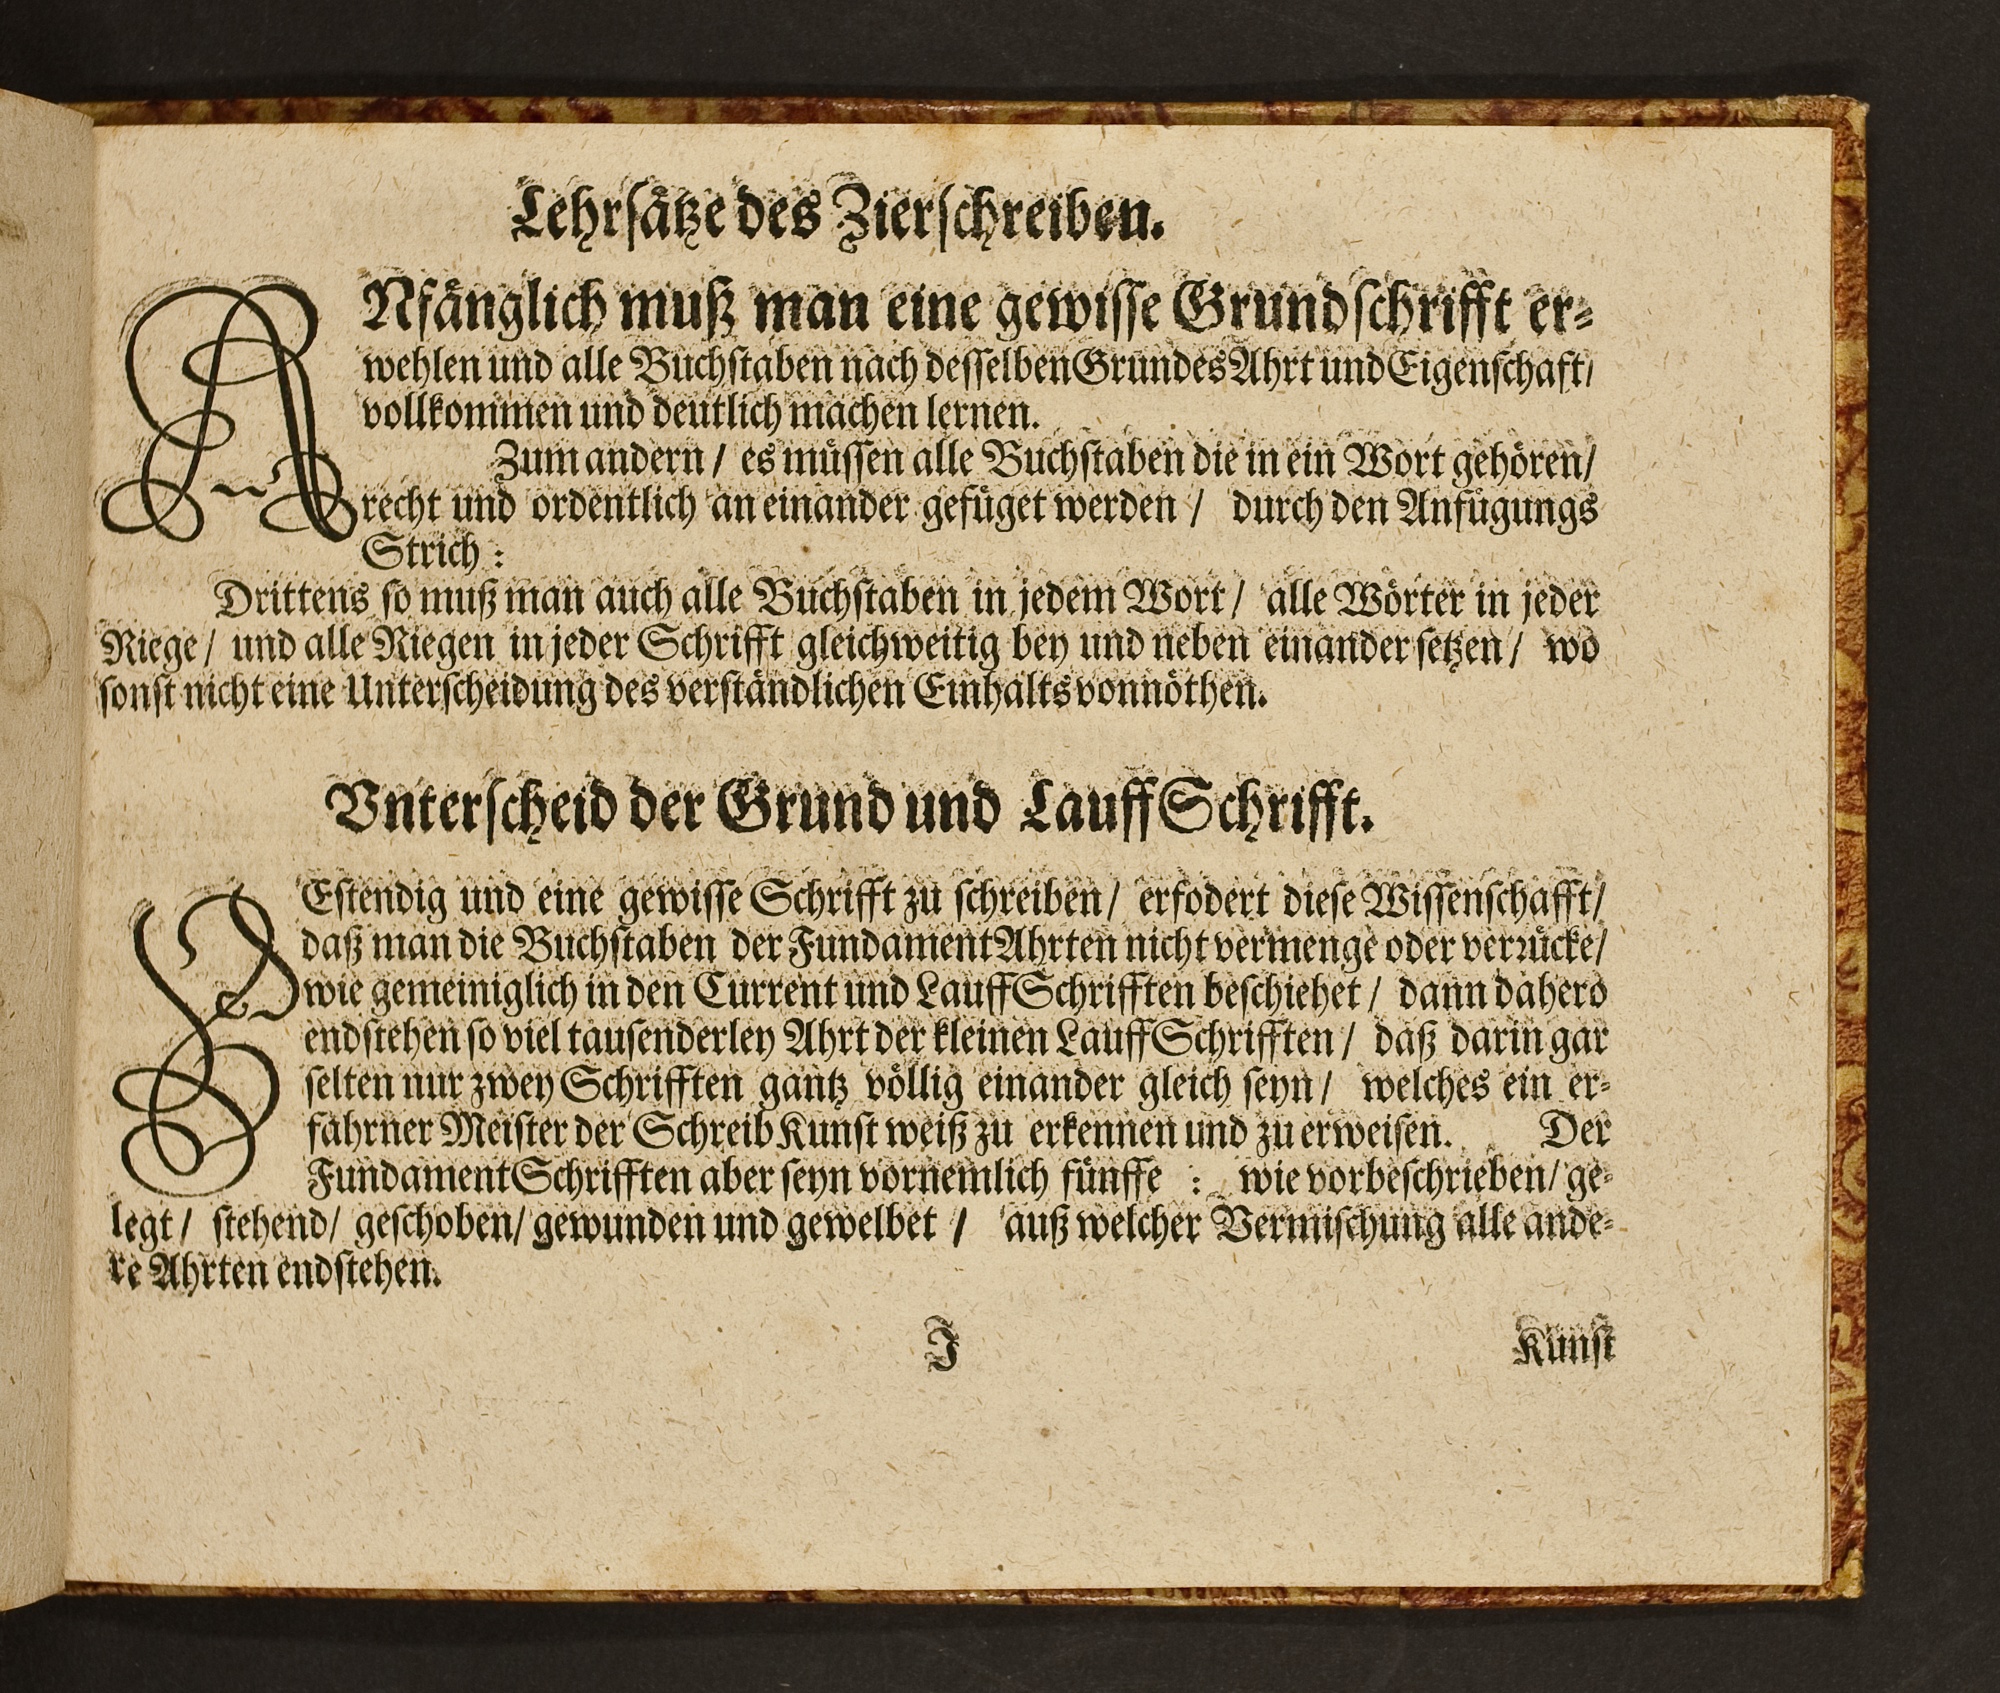 Lehrsätze des Zierschreiben.
ANfänglich muß man eine gewisse Grundschrifft er-
wehlen und alle Buchstaben nach desselben Grundes Ahrt und Eigenschaft/
vollkommen und deutlich machen lernen.
Zum andern / es müssen alle Buchstaben die in ein Wort gehören/
recht und ordentlich an einander gefüget werden / durch den Anfügungs
Strich :
Drittens so muß man auch alle Buchstaben in jedem Wort / alle Wörter in jeder
Riege / und alle Riegen in jeder Schrifft gleichweitig bey und neben einander setzen / wo
sonst nicht eine Unterscheidung des verständlichen Einhalts vonnöthen.
Vnterscheid der Grund und Lauff Schrifft.
BEstendig und eine gewisse Schrifft zu schreiben / erfodert diese Wissenschafft/
daß man die Buchstaben der Fundament Ahrten nicht vermenge oder verrücke/
wie gemeiniglich in den Current und Lauff Schrifften beschiehet / dann dahero
endstehen so viel tausenderley Ahrt der kleinen Lauff Schrifften / daß darin gar
selten nur zwey Schrifften gantz völlig einander gleich seyn / welches ein er-
fahrner Meister der Schreib Kunst weiß zu erkennen und zu erweisen. Der
Fundament Schrifften aber seyn vornemlich fünffe : wie vorbeschrieben/ ge-
legt / stehend/ geschoben/ gewunden und gewelbet / auß welcher Vermischung alle ande-
re Ahrten endstehen.
J Kunst